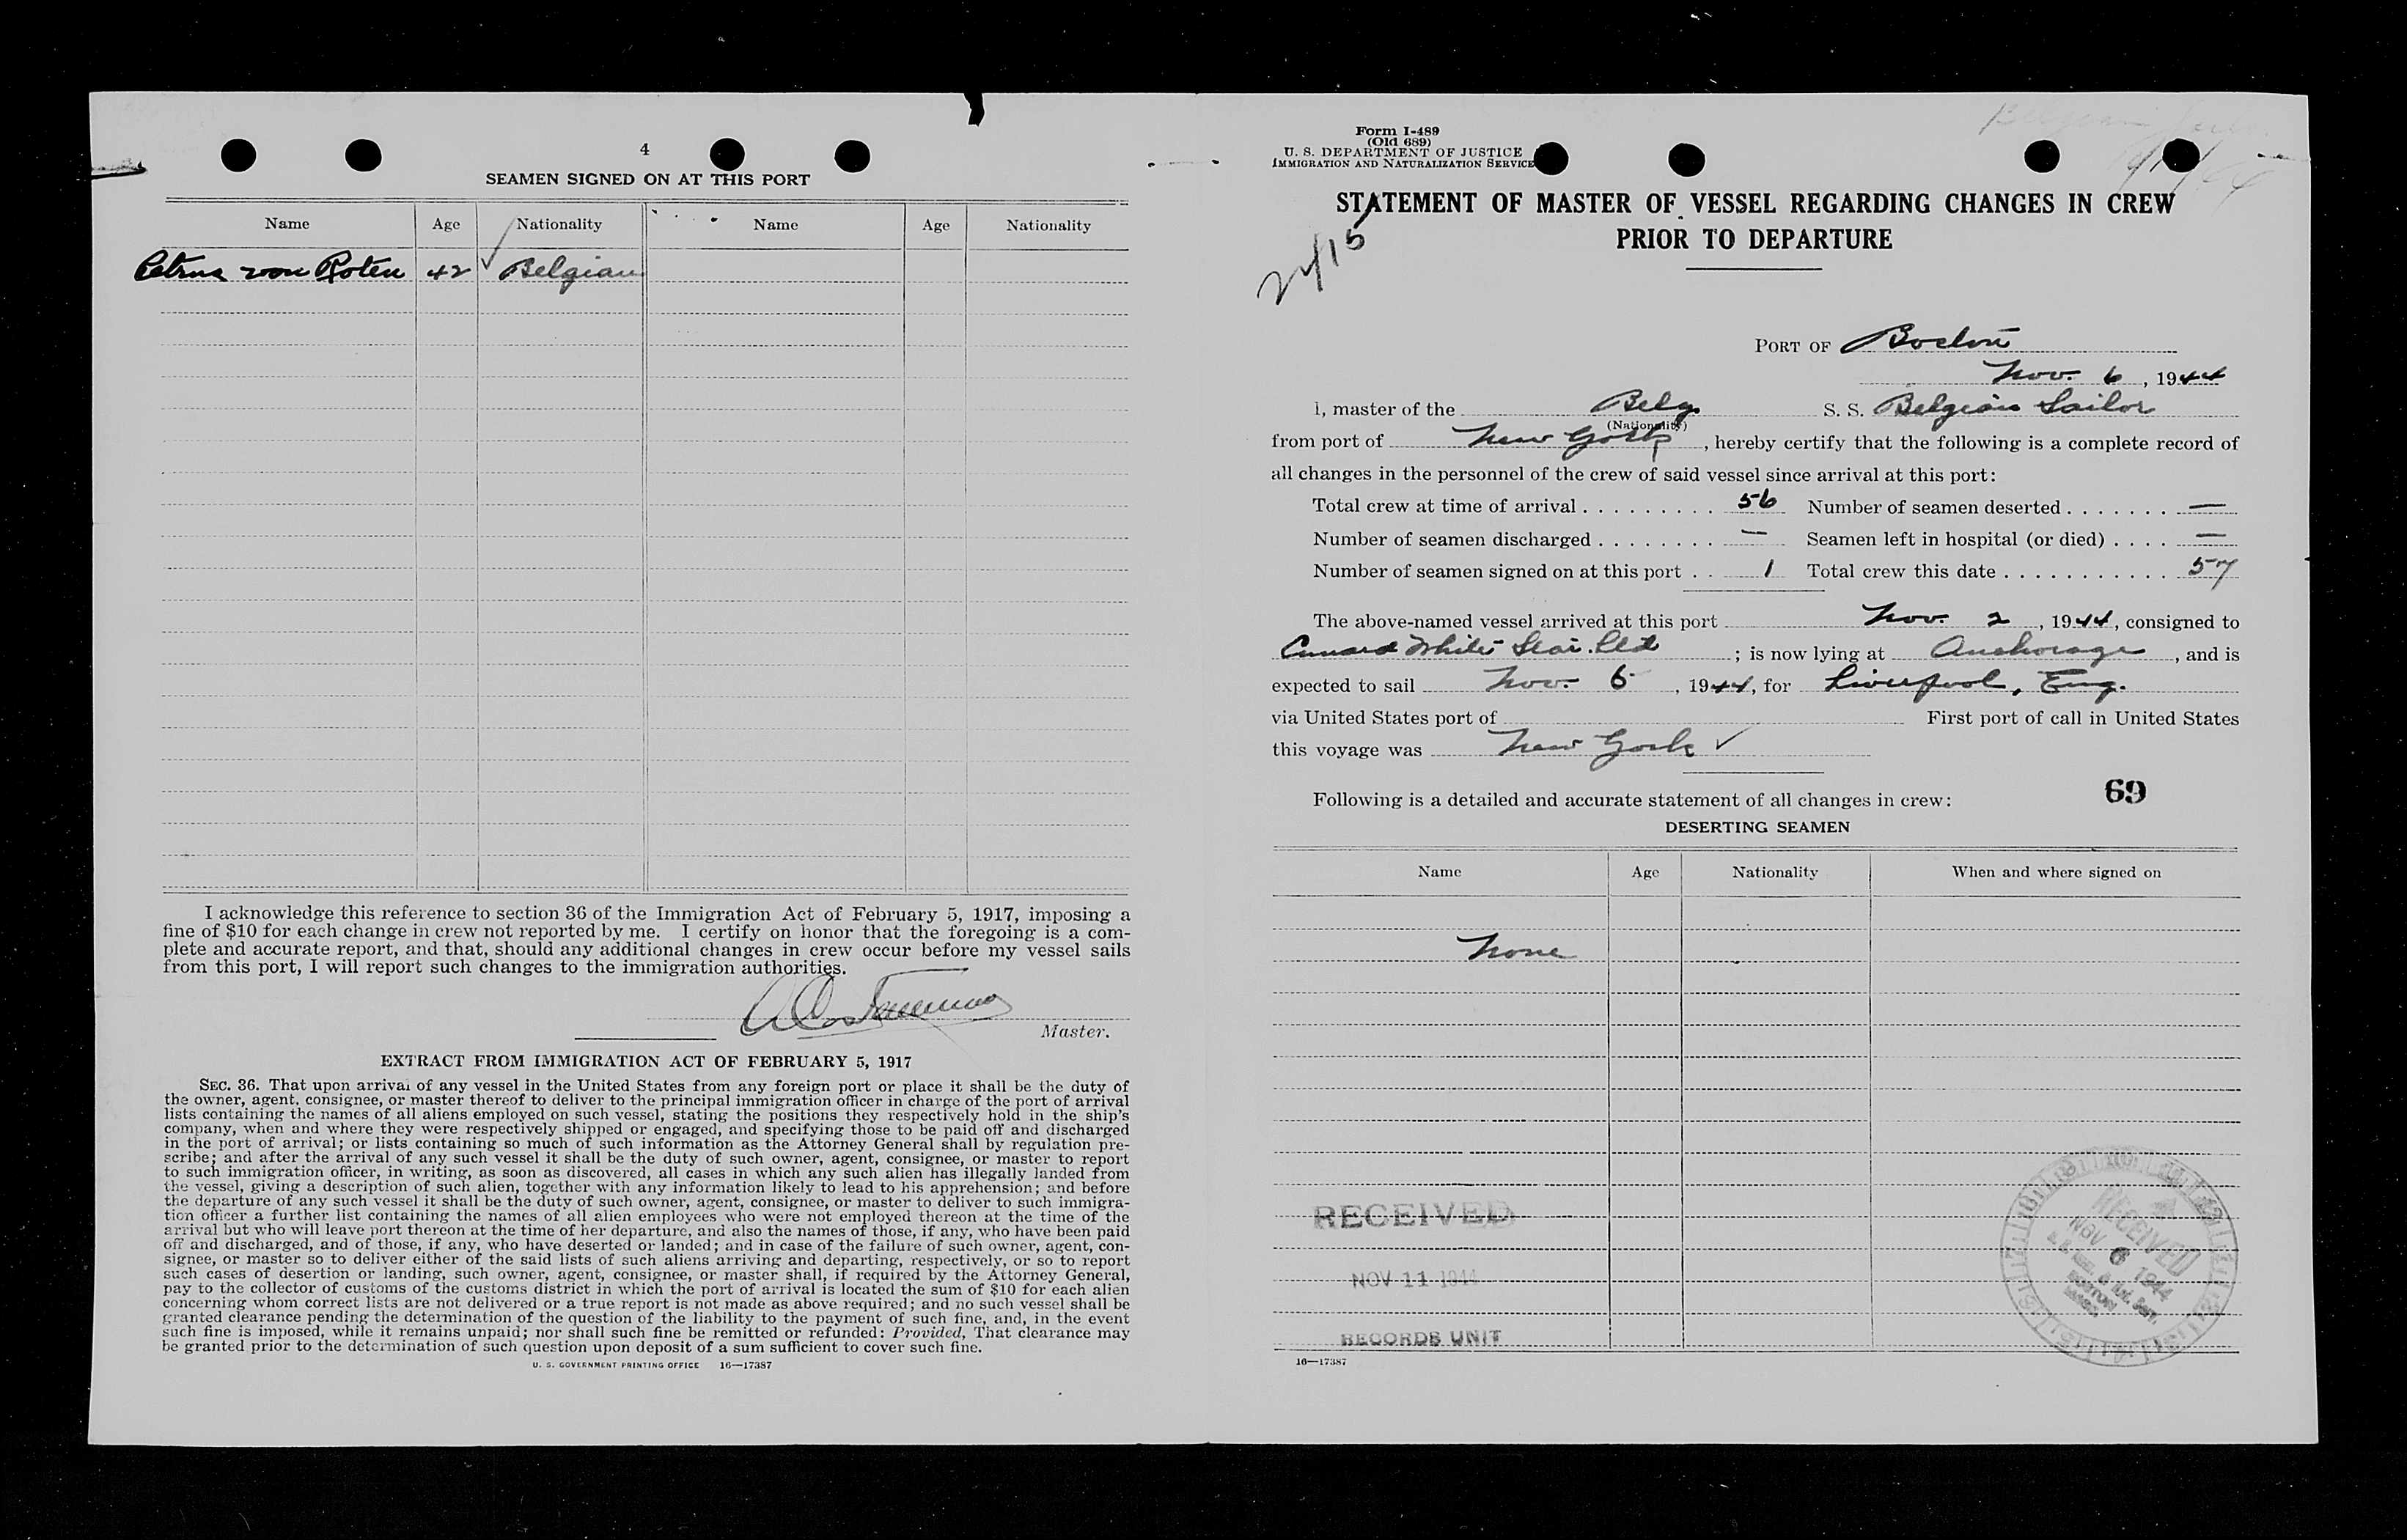 4
SEAMEN SIGNED ON AT THIS PORT
Name Age Nationality Name Age Nationality
Petrus von Roten 42 Belgian
I acknowledge this reference to section 36 of the Immigration Act of February 5, 1917, imposing a
fine of $10 for each change in crew not reported by me. I certify on honor that the foregoing is a com-
plete and accurate report, and that, should any additional changes in crew occur before my vessel sails
from this port, I will report such changes to the immigration authorities.
Master.
EXTRACT FROM IMMIGRATION ACT OF FEBRUARY 5, 1917
SEC. 36. That upon arrival of any vessel in the United States from any foreign port or place it shall be the duty of
the owner, agent, consignee, or master thereof to deliver to the principal immigration officer in charge of the port of arrival
lists containing the names of all aliens employed on such vessel, stating the positions they respectively hold in the ship's
company, when and where they were respectively shipped or engaged, and specifying those to be paid off and discharged
in the port of arrival; or lists containing so much of such information as the Attorney General shall by regulation pre-
scribe; and after the arrival of any such vessel it shall be the duty of such owner, agent, consignee, or master to report
to such immigration officer, in writing, as soon as discovered, all cases in which any such alien has illegally landed from
the vessel, giving a description of such alien, together with any information likely to lead to his apprehension; and before
the departure of any such vessel it shall be the duty of such owner, agent, consignee, or master to deliver to such immigra-
tion officer a further list containing the names of all alien employees who were not employed thereon at the time of the
arrival but who will leave port thereon at the time of her departure, and also the names of those, if any, who have been paid
off and discharged, and of those, if any, who have deserted or landed; and in case of the failure of such owner, agent, con-
signee, or master so to deliver either of the said lists of such aliens arriving and departing, respectively, or so to report
such cases of desertion or landing, such owner, agent, consignee, or master shall, if required by the Attorney General,
pay to the collector of customs of the customs district in which the port of arrival is located the sum of $10 for each alien
concerning whom correct lists are not delivered or a true report is not made as above required; and no such vessel shall be
granted clearance pending the determination of the question of the liability to the payment of such fine, and, in the event
such fine is imposed, while it remains unpaid; nor shall such fine be remitted or refunded: Provided, That clearance may
be granted prior to the determination of such question upon deposit of a sum sufficient to cover such fine.
U. S. GOVERNMENT PRINTING OFFICE 16—17387
Form I-489
(Old 689)
U. S. DEPARTMENT OF JUSTICE
IMMIGRATION AND NATURALIZATION SERVICE
STATEMENT OF MASTER OF VESSEL REGARDING CHANGES IN CREW
PRIOR TO DEPARTURE
PORT OF Boston
Nov. 6, 1944
I, master of the Belg S. S. Belgian Sailor
(Nationality)
from port of New York, hereby certify that the following is a complete record of
all changes in the personnel of the crew of said vessel since arrival at this port:
Total crew at time of arrival . . . . . . . . . 56 Number of seamen deserted . . . . . . . —
Number of seamen discharged . . . . . . . . — Seamen left in hospital (or died) . . . . —
Number of seamen signed on at this port . . 1 Total crew this date . . . . . . . . . . . . 57
The above-named vessel arrived at this port Nov. 2, 1944, consigned to
Cunard White Star Ltd; is now lying at Anchorage, and is
expected to sail Nov. 6, 1944, for Liverpool, Eng.
via United States port of First port of call in United States
this voyage was New York ✓
Following is a detailed and accurate statement of all changes in crew: 69
DESERTING SEAMEN
Name Age Nationality When and where signed on
None
RECEIVED
NOV 11 1944
RECORDS UNIT
RECEIVED
NOV 6 1944
16—17387